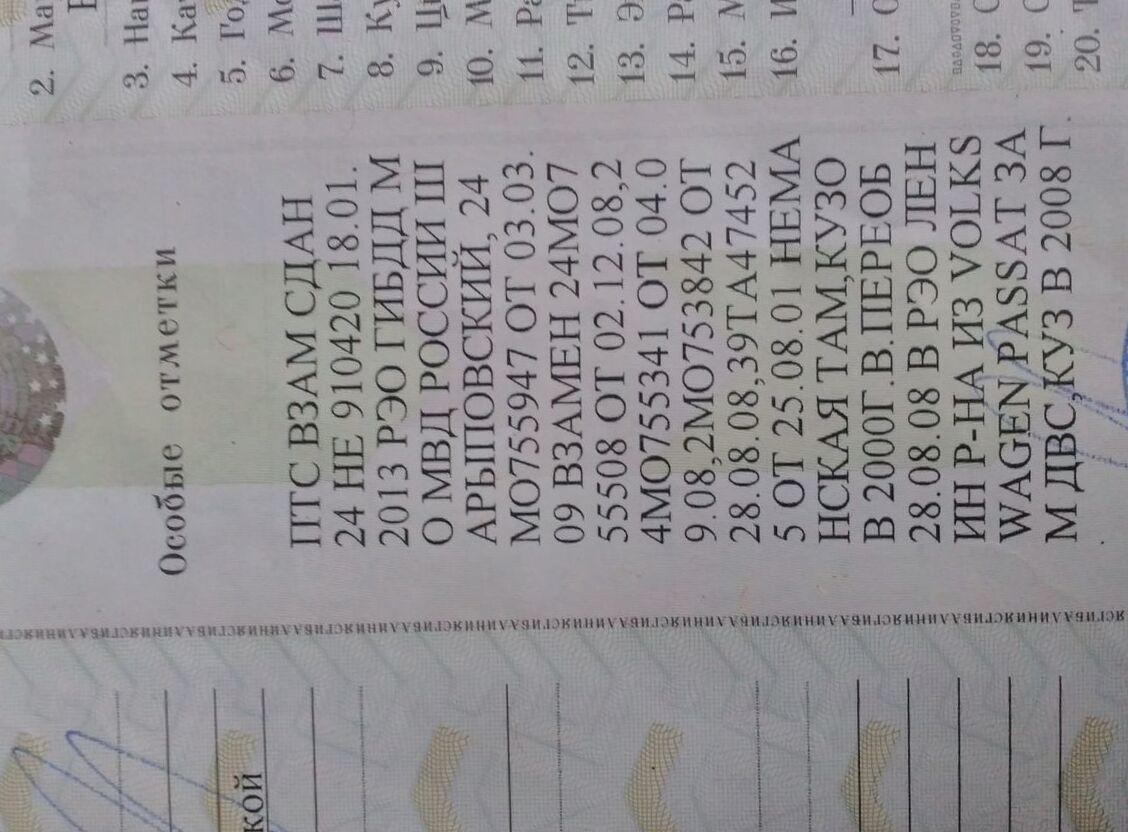 Особые отметки
ПТС ВЗАМ СДАН
24 НЕ 910420 18.01.
2013 РЭО ГИБДД М
О МВД РОССИИ Ш
АРЫПОВСКИЙ, 24
МО755947 ОТ 03.03.
09 ВЗАМЕН 24МО7
55508 ОТ 02.12.08,2
4МО755341 ОТ 04.0
9.08,2МО753842 ОТ
28.08.08,39ТА47452
5 ОТ 25.08.01 НЕМА
НСКАЯ ТАМ,КУЗО
В 2000Г.В.ПЕРЕОБ
28.08.08 В РЭО ЛЕН
ИН Р-НА ИЗ VOLKS
WAGEN PASSAT ЗА
М ДВС,КУЗ В 2008 Г.
2. Ма
3. На
4. Ка
5. Го
6. Мо
7. Ша
8. Ку
9. Ц
10. М
11. Ра
12. Т
13. Э
14. Ра
15. М
16. И
17. О
18. С
19. С
20. Т
кой